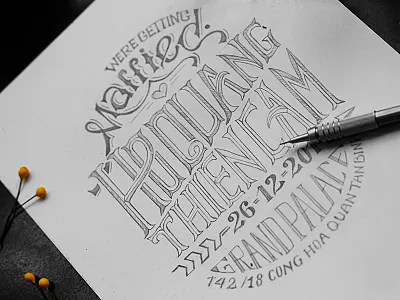 WE'RE GETTING
Married!
HAOQUANG
THIENCAM
26-12-20
GRAND PALACE
142/18 CONG HOA QUAN TAN BIN